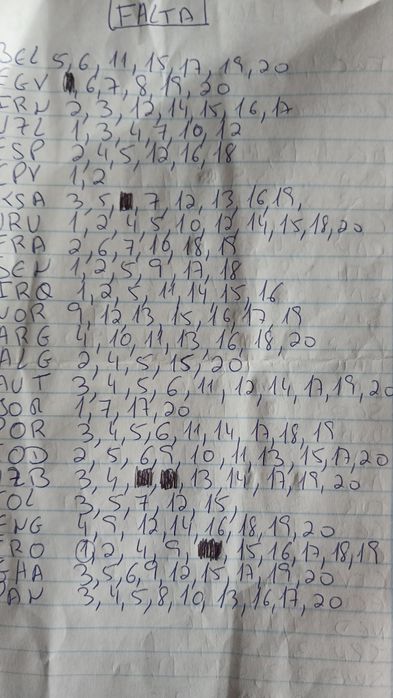 FALTA
BEL 5, 6, 11, 15, 17, 19, 20
EGY 6, 7, 8, 19, 20
IRN 2, 3, 12, 14, 15, 16, 17
NZL 1, 3, 4, 7, 10, 12
ESP 2, 4, 5, 12, 16, 18
CPV 1, 2
KSA 3, 5, 7, 12, 13, 16, 19,
URU 1, 2, 4, 5, 10, 12, 14, 15, 18, 20
FRA 2, 6, 7, 16, 18, 19
SEN 1, 2, 5, 9, 17, 18
IRQ 1, 2, 5, 11, 14, 15, 16
NOR 9, 12, 13, 15, 16, 17, 19
ARG 4, 10, 11, 13, 16, 18, 20
ALG 2, 4, 5, 15, 20
AUT 3, 4, 5, 6, 11, 12, 14, 17, 19, 20
JOR 1, 7, 17, 20
POR 3, 4, 5, 6, 11, 14, 17, 18, 19
COD 2, 5, 6, 9, 10, 11, 13, 15, 17, 20
UZB 3, 4, 13, 14, 17, 19, 20
COL 3, 5, 7, 12, 15,
ENG 4, 9, 12, 14, 16, 18, 19, 20
CRO 1, 2, 4, 9, 15, 16, 17, 18, 19
GHA 3, 5, 6, 9, 12, 15, 17, 19, 20
PAN 3, 4, 5, 8, 10, 13, 16, 17, 20